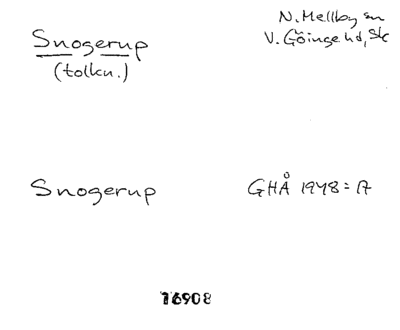 Snogerup
(tolkn.)
N. Mellby sn
V. Göinge hd, Sk
Snogerup
GHÅ 1948:17
76908